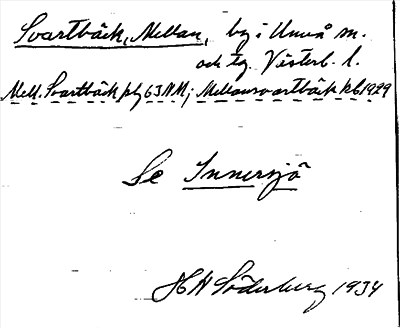 Svartbäck, Mellan, by i Umeå sn.
och tg. Västerb. l.
Mell. Svartbäck pbg 63 NN; Mellansvartbäck kb 1929
Se Innersjö
H N Söderberg 1934